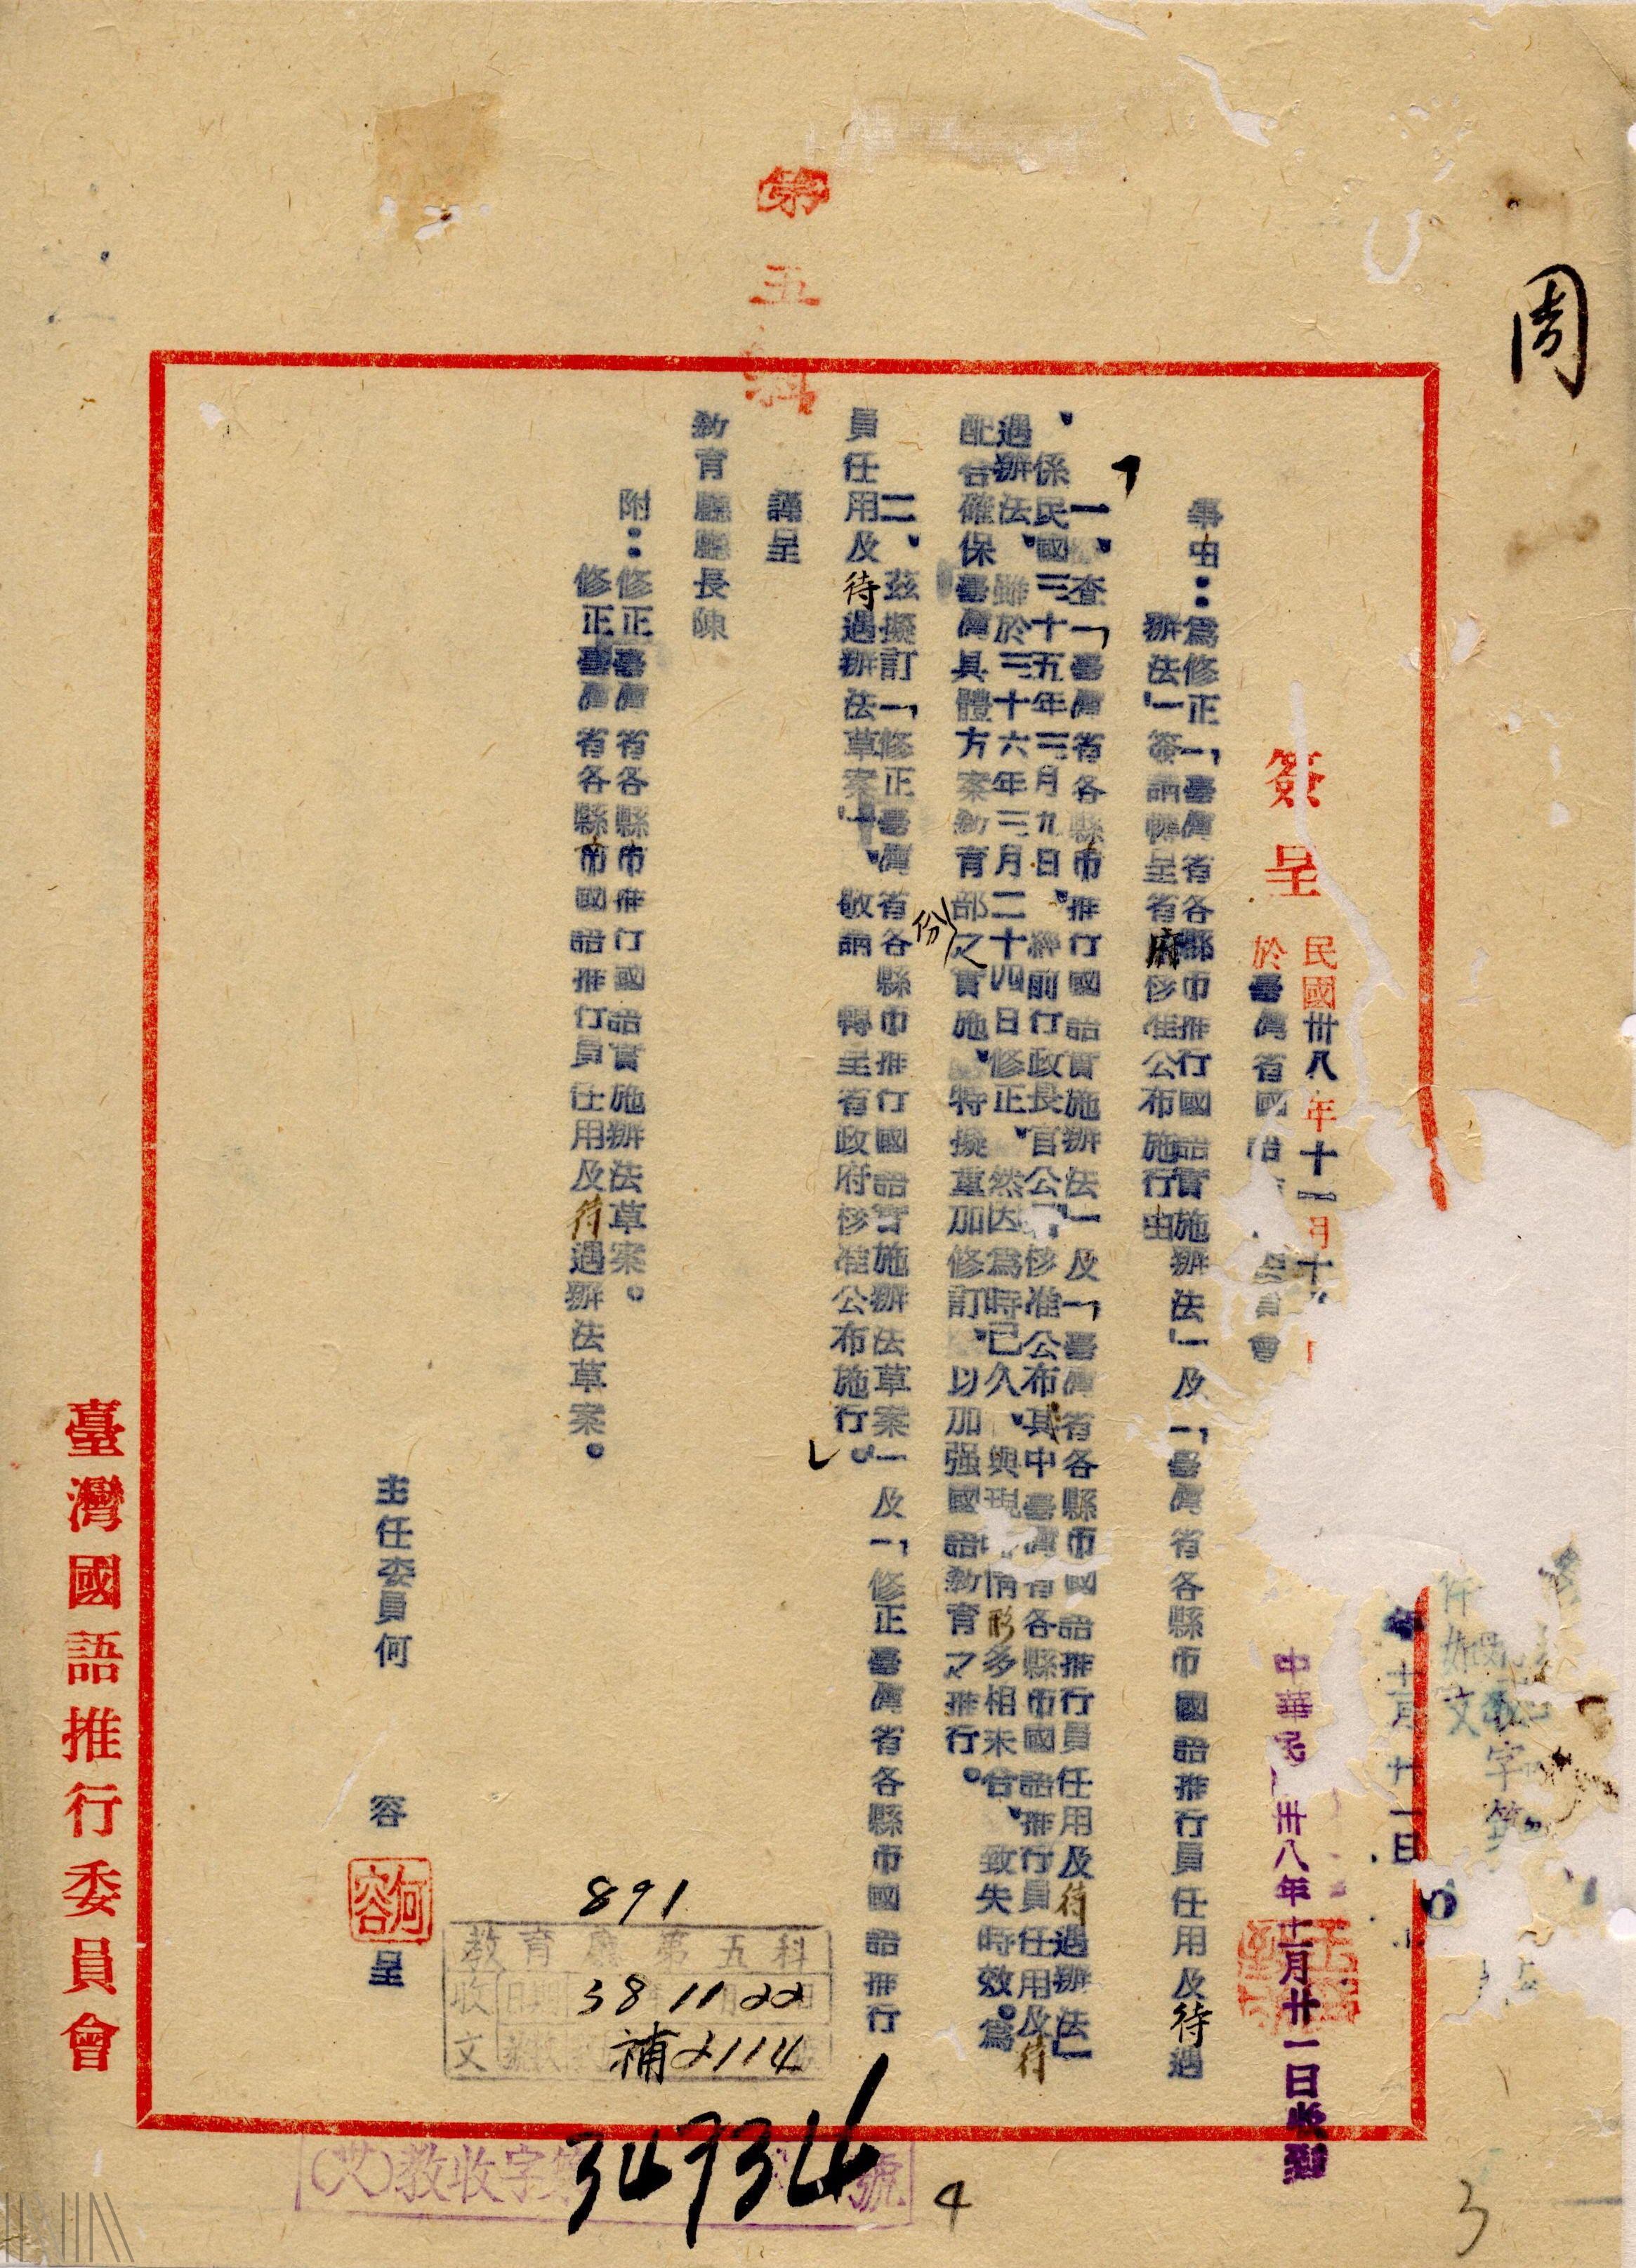 周
第五科
簽呈
民國卅八年十一月十
於臺灣省國語
員會
事由：為修正「臺灣省各縣市推行國語實施辦法」及「臺灣省各縣市國語推行員任用及待遇
辦法」簽請轉呈省府核准公布施行由
一、查「臺灣省各縣市推行國語實施辦法」及「臺灣省各縣市國語推行員任用及待遇辦法」
，係民國三十五年三月九日，經前行政長官公署核准公布其中臺灣省各縣市國語推行員任用及待
遇辦法，雖於三十六年三月二十四日修正，然因為時已久，與現時情形多相未合，致失時效。為
配合確保臺灣具體方案教育部份之實施，特擬重加修訂，以加强國語教育之推行。
二、茲擬訂「修正臺灣省各縣市推行國語實施辦法草案」及「修正臺灣省各縣市國語推行
員任用及待遇辦法草案」，敬請 轉呈省政府核准公布施行。
謹呈
教育廳廳長陳
附：修正臺灣省各縣市推行國語實施辦法草案。
修正臺灣省各縣市國語推行員任用及待遇辦法草案。
主任委員何 容 呈
何容
臺灣國語推行委員會
中華民 卅八年十一月廿一日收到
年十一月廿一日
件如文
教字第
891
教育廳第五科
收 日期 38 11 22
文 號數 補2114
教收字第 34734 號
4
3